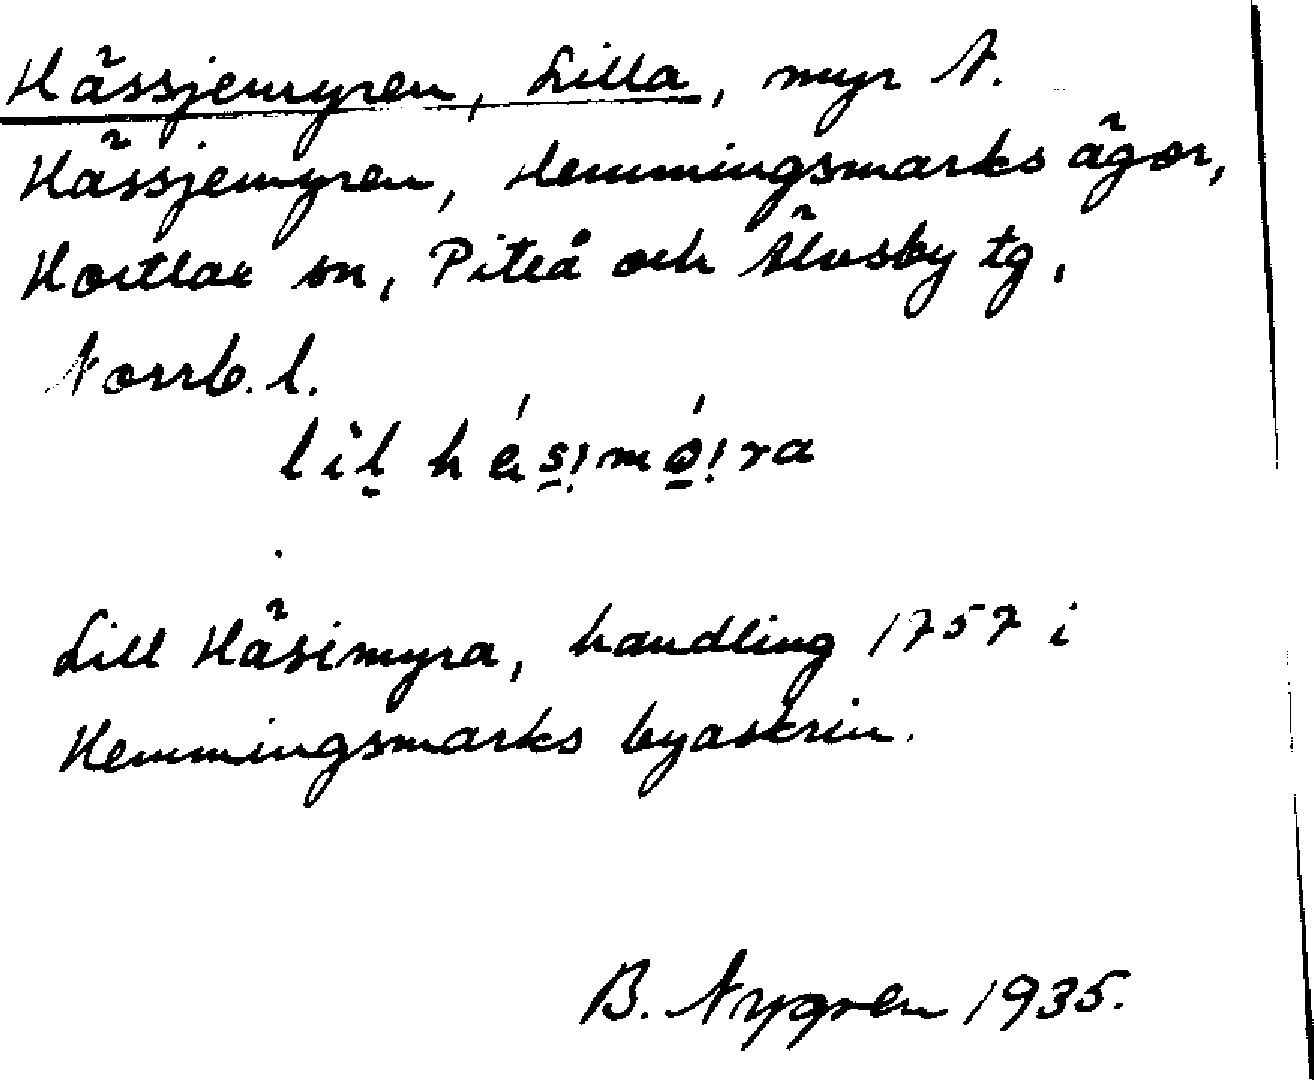 Hässjemyren, Lilla, myr N.
Hässjemyren, Hemmingsmarks ägor,
Hortlax sn, Piteå och Älvsby tg,
Norrb. l.
lil
Lill Häsimyra, handling 1757 i
Hemmingsmarks byaskrin.
B. Nygren 1935.